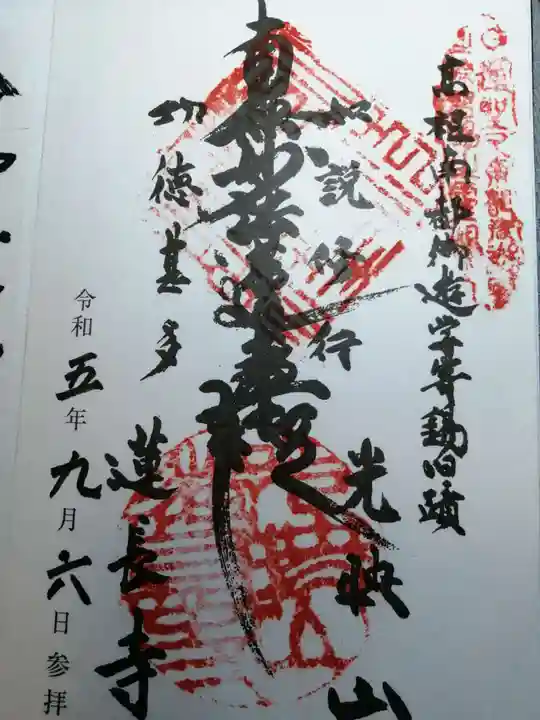 高祖南都御遊学寄錫旧蹟
如説修行
光映山
南無妙法蓮華経
功徳甚多
蓮長寺
令和五年九月六日参拝